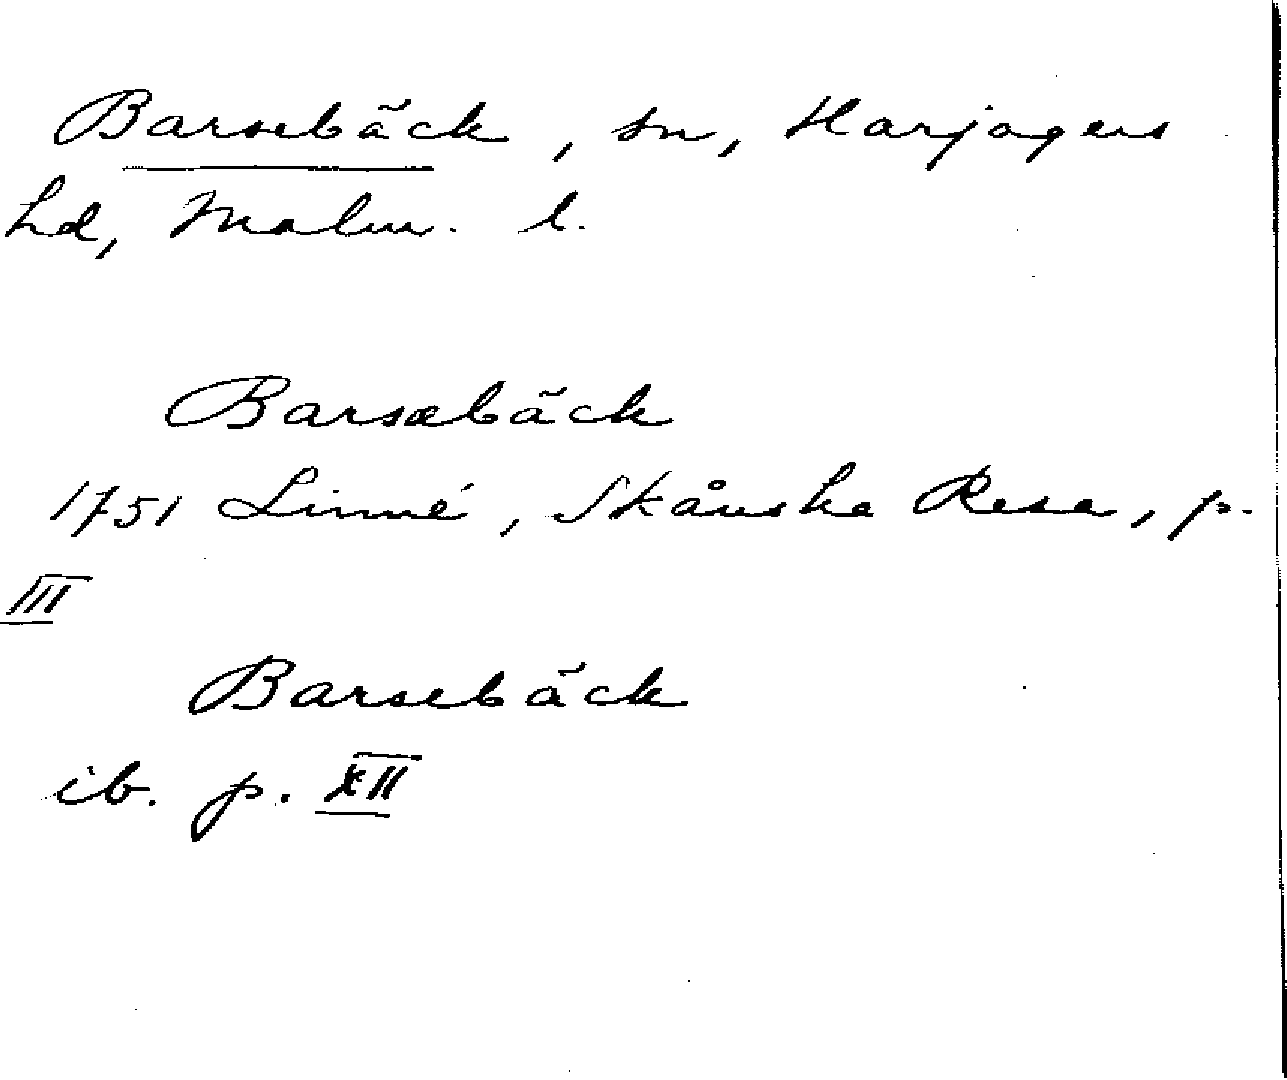 Barsebäck, sn, Harjagers
hd, Malm. l.
Barsæbäck
1751 Linné, Skånska Resa, p.
III
Barsebäck
ib. p. XII